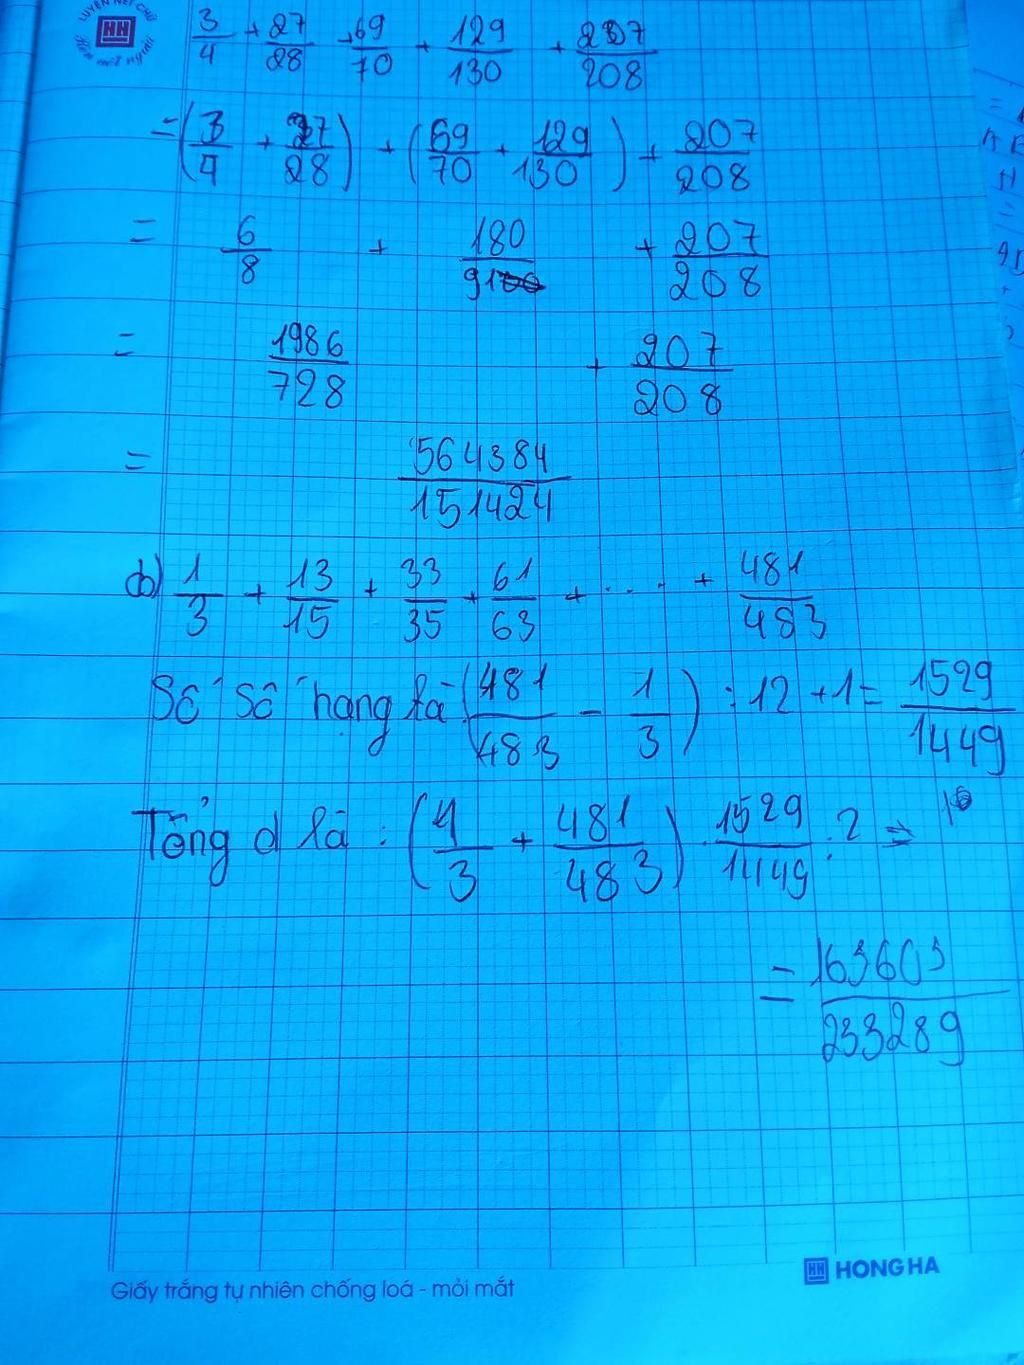 LUYỆN NÉT CHỮ
HH
Rèn nết người
3/4 + 27/28 + 69/70 + 129/130 + 207/208
= (3/4 + 27/28) + (69/70 + 129/130) + 207/208
= 6/8 + 180/91 + 207/208
= 1986/728 + 207/208
= 564384/151424
b) 1/3 + 13/15 + 33/35 + 61/63 + .... + 481/483
Số số hạng là: (481/483 - 1/3) : 12 + 1 = 1529/1449
Tổng d là: (1/3 + 481/483) . 1529/1449 : 2 =
= 163603/233289
HH HONG HA
Giấy trắng tự nhiên chống loá - mỏi mắt